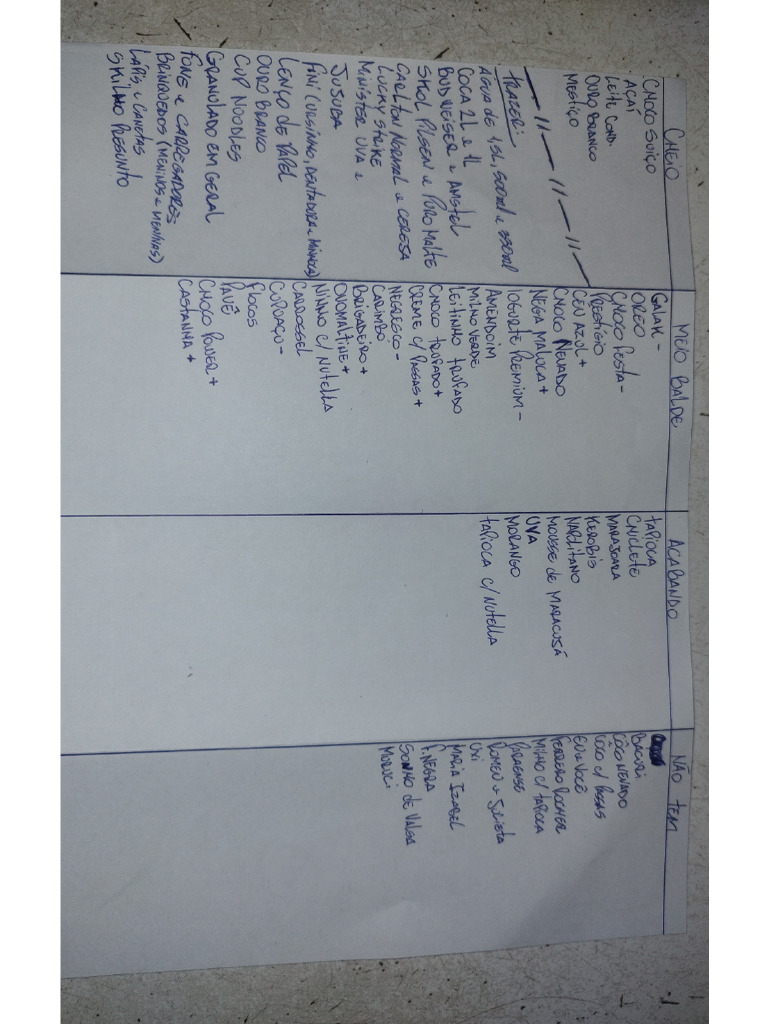 CHEIO
CHOCO SUIÇO
AÇAÍ
LEITE COND.
OURO BRANCO
MESTIÇO
— // — // — // —
TRAZER:
ÁGUA DE 1,5L, 500ml e 350ml
COCA 2L e 1L
BUDWEISER e AMSTEL
SKOL PILSEN e PURO MALTE
CARLTON NORMAL e CEREJA
LUCKY STRIKE
MINISTER UVA e
JUJUBA
FINI (URSINHO, DENTADURA e MINHOCA)
LENÇO DE PAPEL
OURO BRANCO
CUP NOODLES
GRANULADO EM GERAL
FONE e CARREGADORES
BRINQUEDOS (MENINOS e MENINAS)
LÁPIS e CANETAS
SKILHO PRESUNTO
MEIO BALDE
GALAK -
OREO
CHOCO FESTA -
PRESTÍGIO
CÉU AZUL +
CHOCO NEVADO
NEGA MALUCA +
IOGURTE PREMIUM -
AMENDOIM
MILHO VERDE
LEITINHO TRUFADO
CHOCO TRUFADO +
CREME C/ PASSAS +
NEGRESCO -
CARIMBÓ
BRIGADEIRO +
OVOMALTINE +
NINHO C/ NUTELLA
CARROSSEL
CUPUAÇU -
FLOCOS
PAVÊ
CHOCO POWER +
CASTANHA +
ACABANDO
TAPIOCA
CHICLETE
MARAJOARA
KEROBIS
NAPOLITANO
MOUSSE DE MARACUJÁ
UVA
MORANGO
TAPIOCA C/ NUTELLA
NÃO TEM
BACURI
CÔCO NEVADO
CÔCO C/ PASSAS
EU e VOCÊ
FERRERO ROCHER
MILHO C/ TAPIOCA
PARAENSE
ROMEU e JULIETA
UXI
MARIA IZABEL
F. NEGRA
SONHO DE VALSA
MURUCI